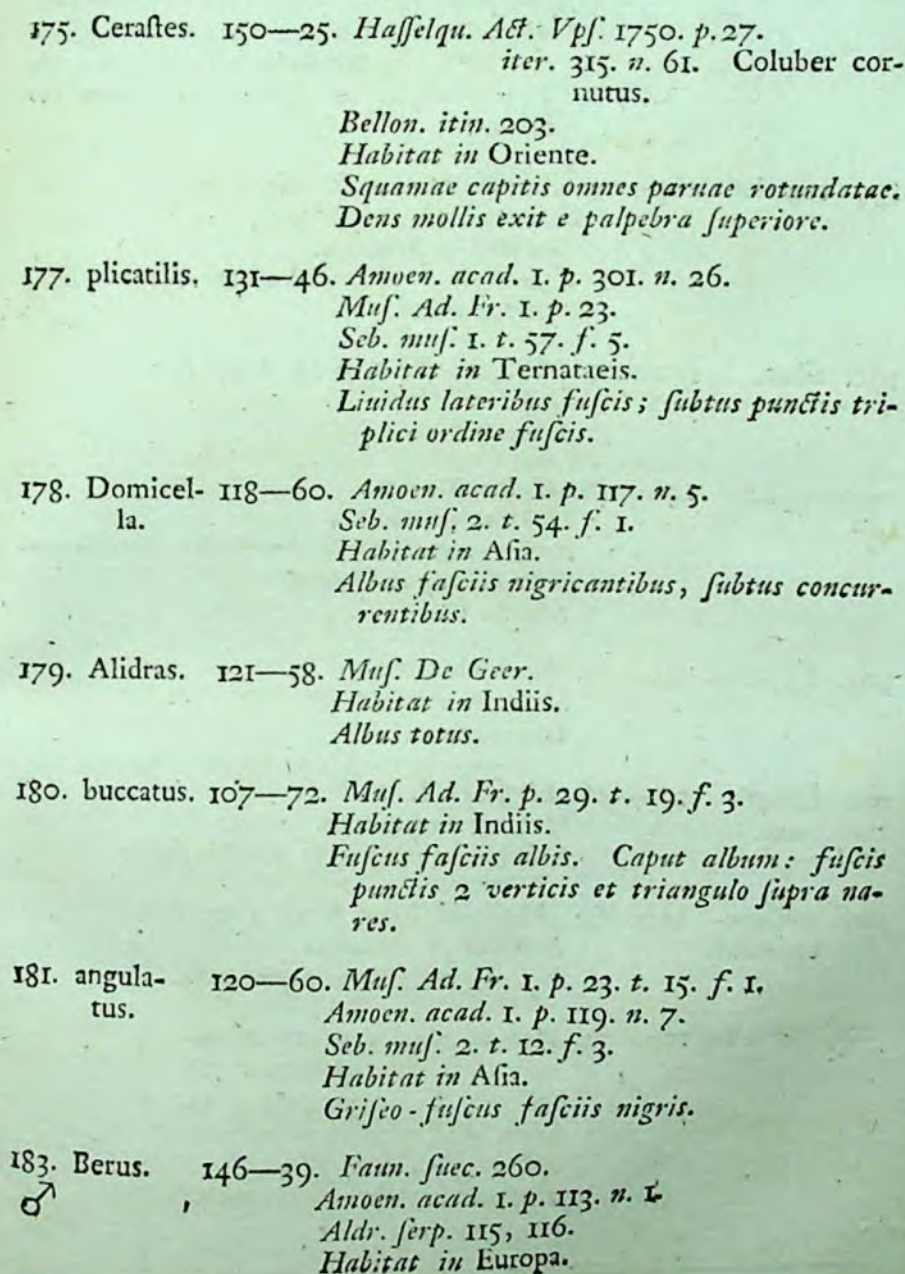 175. Ceraſtes. 150—25. Haſſelqu. Act. Vpſ. 1750. p. 27.
iter. 315. n. 61. Coluber cor-
nutus.
Bellon. itin. 203.
Habitat in Oriente.
Squamae capitis omnes paruae rotundatae.
Dens mollis exit e palpebra ſuperiore.
177. plicatilis. 131—46. Amoen. acad. 1. p. 301. n. 26.
Muſ. Ad. Fr. 1. p. 23.
Seb. muſ. 1. t. 57. f. 5.
Habitat in Ternataeis.
Liuidus lateribus fuſcis; ſubtus punctis tri-
plici ordine fuſcis.
178. Domicel- 118—60. Amoen. acad. 1. p. 117. n. 5.
la. Seb. muſ. 2. t. 54. f. 1.
Habitat in Aſia.
Albus faſciis nigricantibus, ſubtus concur-
rentibus.
179. Alidras. 121—58. Muſ. De Geer.
Habitat in Indiis.
Albus totus.
180. buccatus. 107—72. Muſ. Ad. Fr. p. 29. t. 19. f. 3.
Habitat in Indiis.
Fuſcus faſciis albis. Caput album: fuſcis
punctis 2 verticis et triangulo ſupra na-
res.
181. angula- 120—60. Muſ. Ad. Fr. 1. p. 23. t. 15. f. 1.
tus. Amoen. acad. 1. p. 119. n. 7.
Seb. muſ. 2. t. 12. f. 3.
Habitat in Aſia.
Griſeo-fuſcus faſciis nigris.
183. Berus. 146—39. Faun. ſuec. 260.
♂ Amoen. acad. 1. p. 113. n. 1.
Aldr. ſerp. 115, 116.
Habitat in Europa.